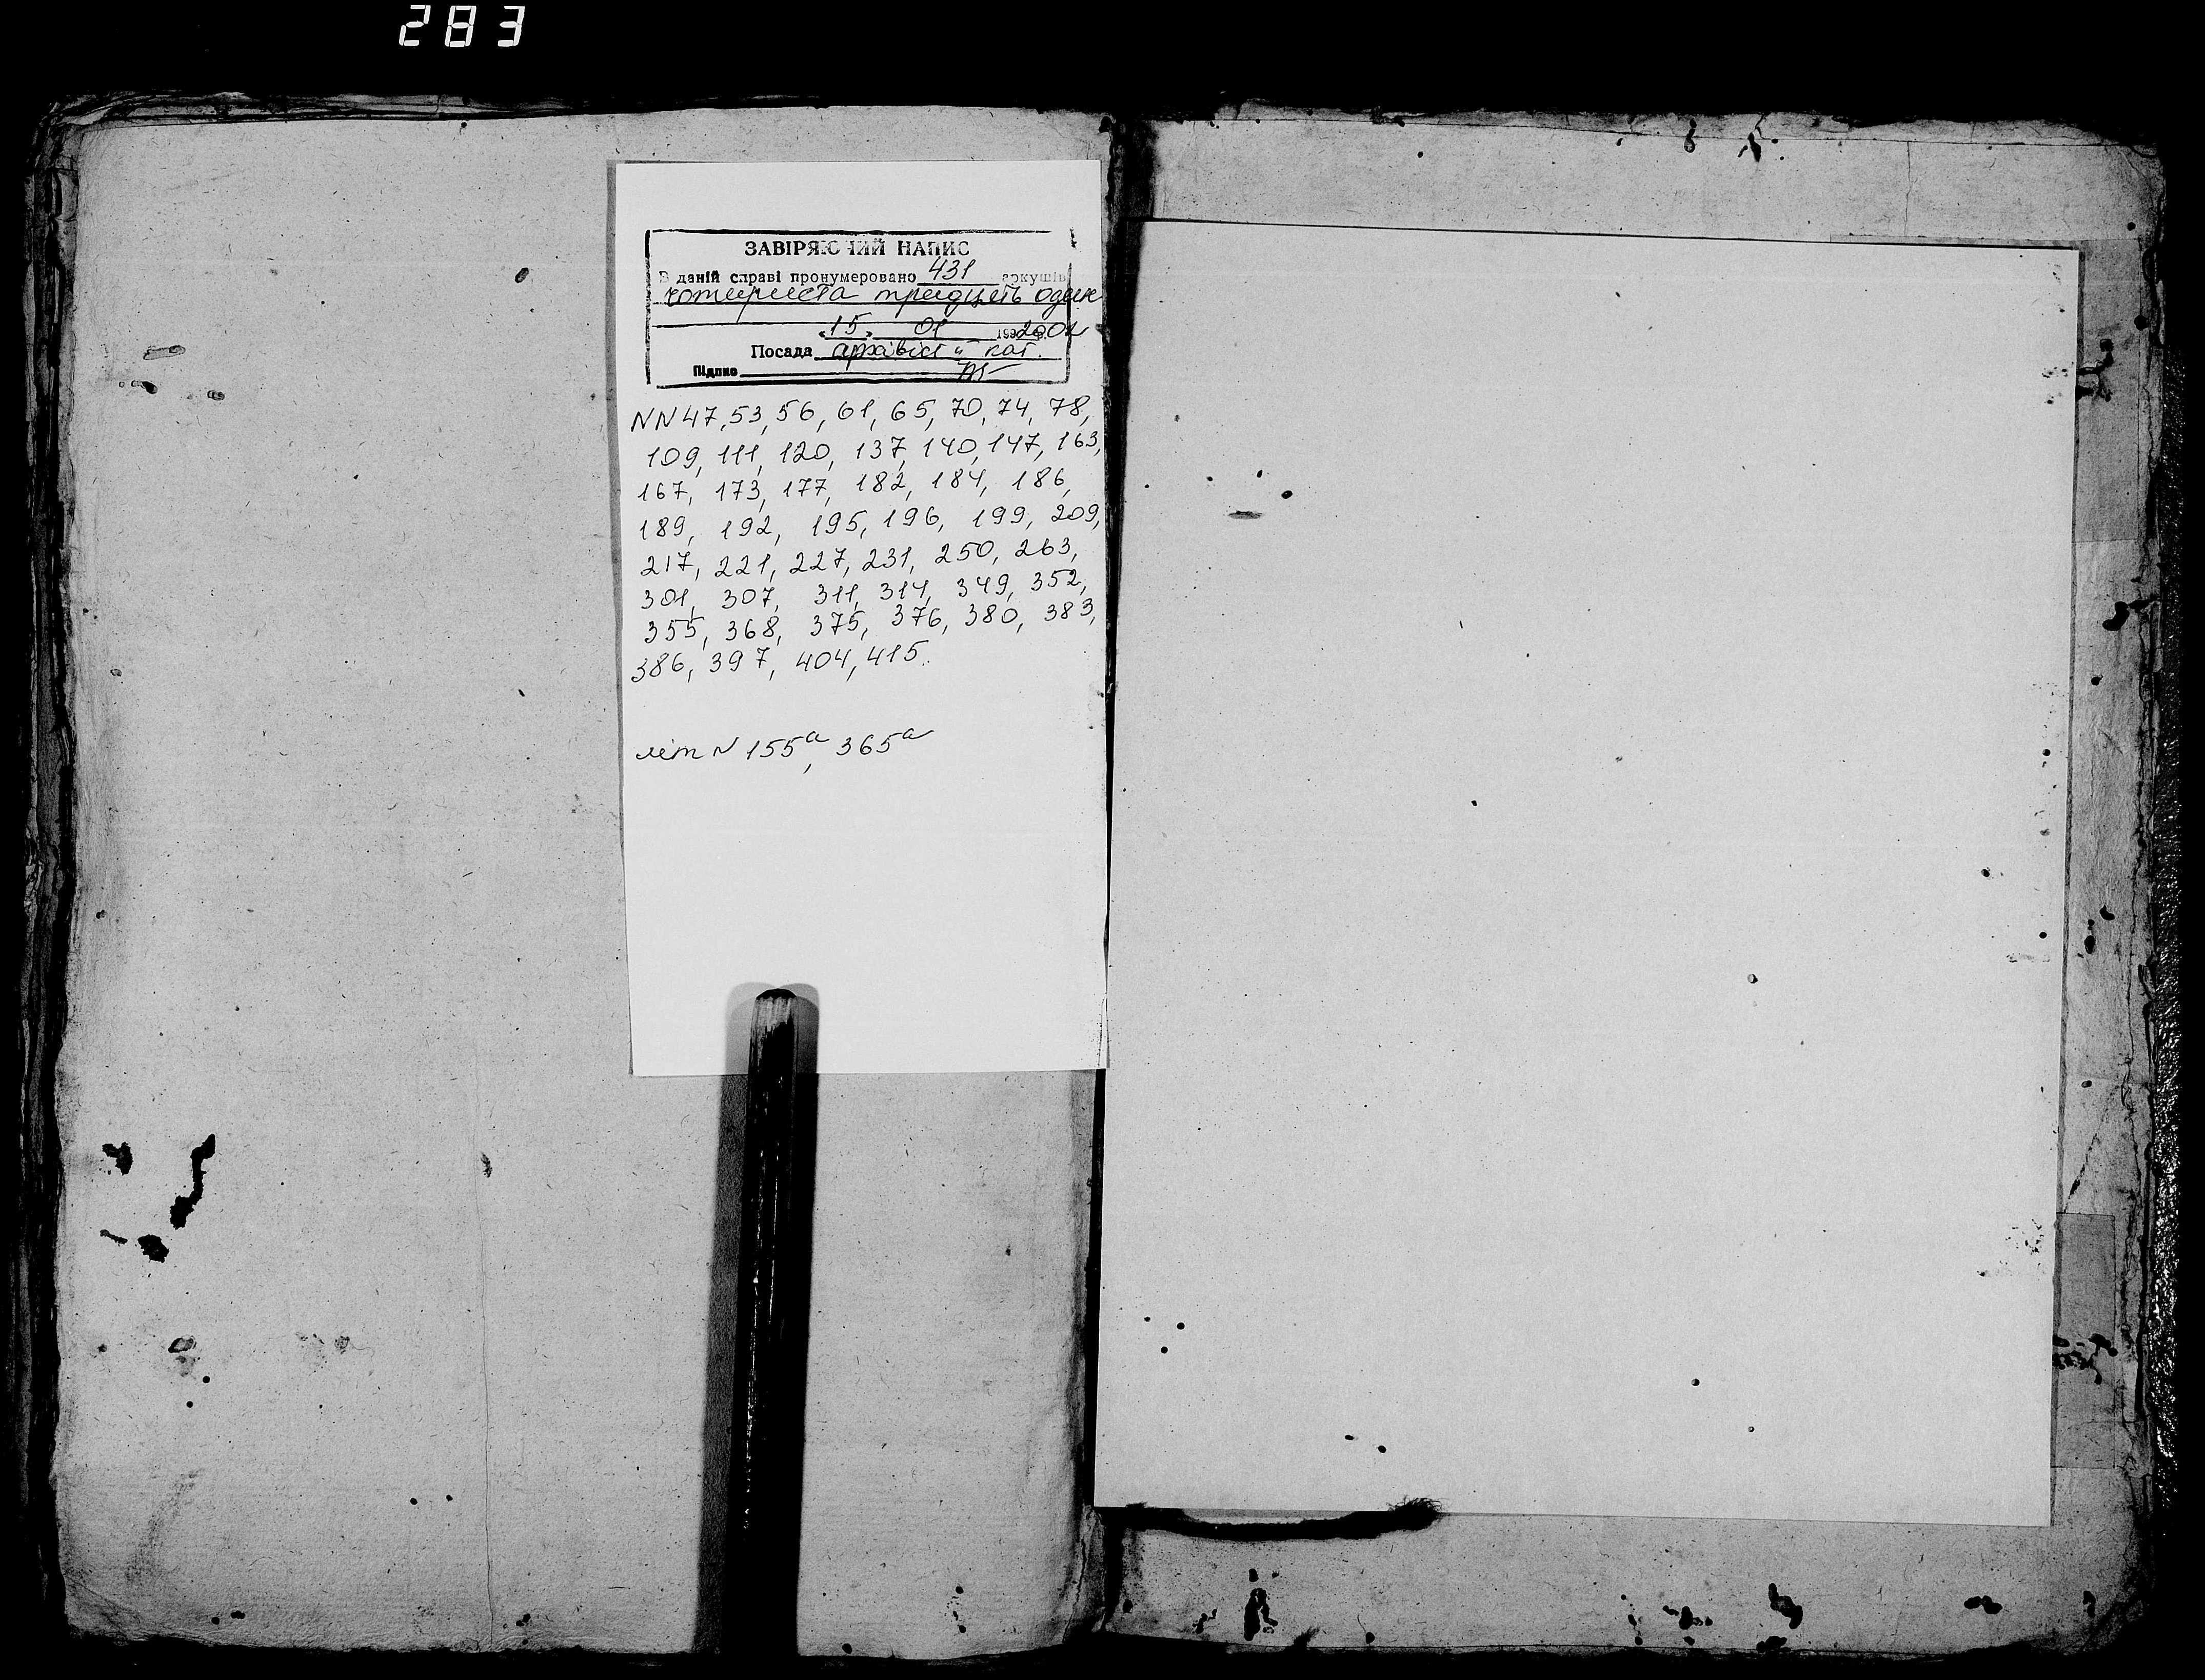 283
ЗАВІРЯЮЧИЙ НАПИС
В даній справі пронумеровано 431 аркушів
чотириста тридцять один
"15" 01 199 2001
Посада архівіст II кат.
Підпис
NN 47, 53, 56, 61, 65, 70, 74, 78,
109, 111, 120, 137, 140, 147, 163,
167, 173, 177, 182, 184, 186,
189, 192, 195, 196, 199, 209,
217, 221, 227, 231, 250, 263,
301, 307, 311, 314, 349, 352,
355, 368, 375, 376, 380, 383,
386, 397, 404, 415.
літ N 155а, 365а